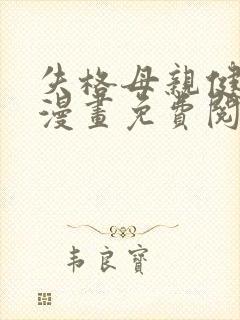 失格母親健
漫畫免費閱
韦良寶